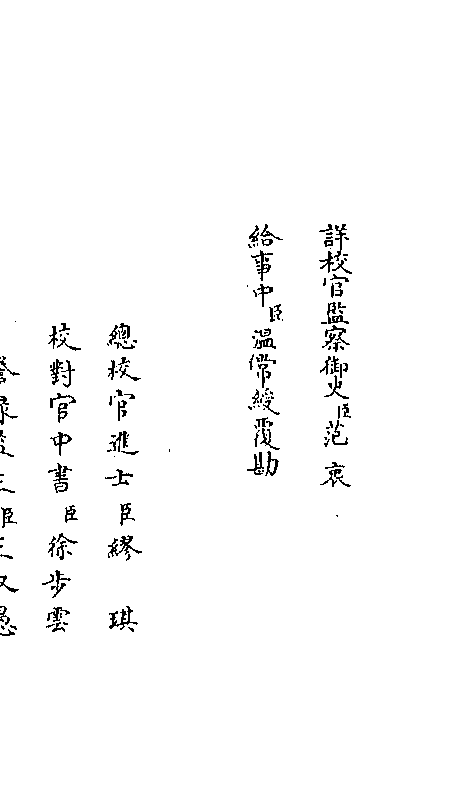 詳校官監察御史臣范衷
給事中臣溫常綬覆勘
總校官進士臣繆琪
校對官中書臣徐步雲
謄錄監生臣王又愚